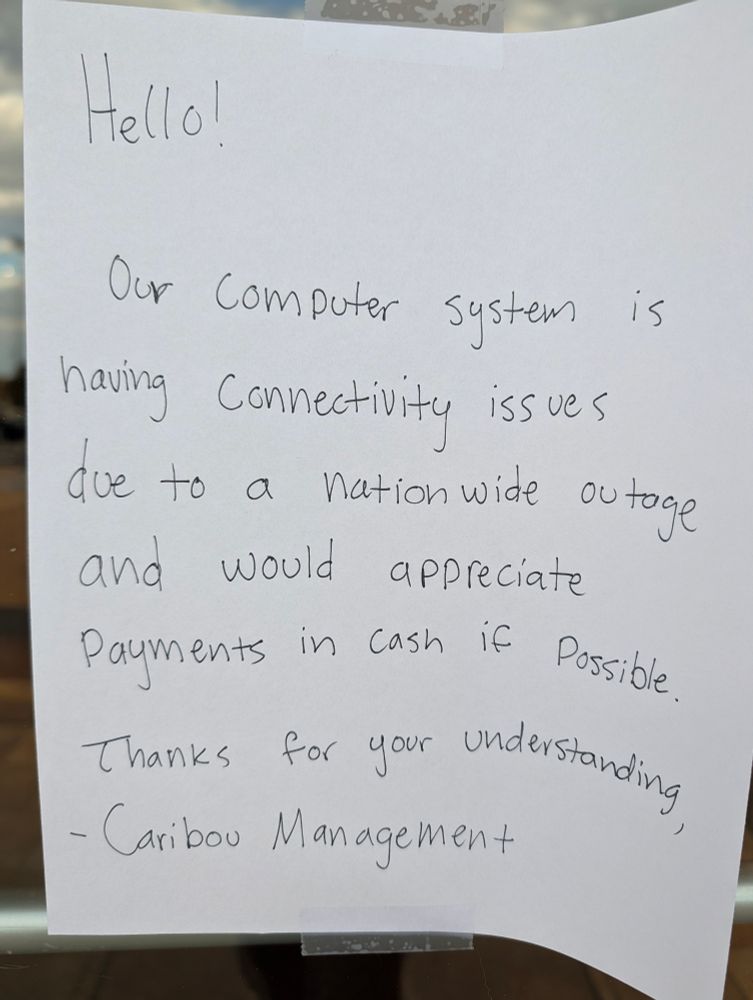 Hello!
Our Computer system is
having Connectivity issues
due to a nationwide outage
and would appreciate
Payments in cash if Possible.
Thanks for your understanding,
- Caribou Management